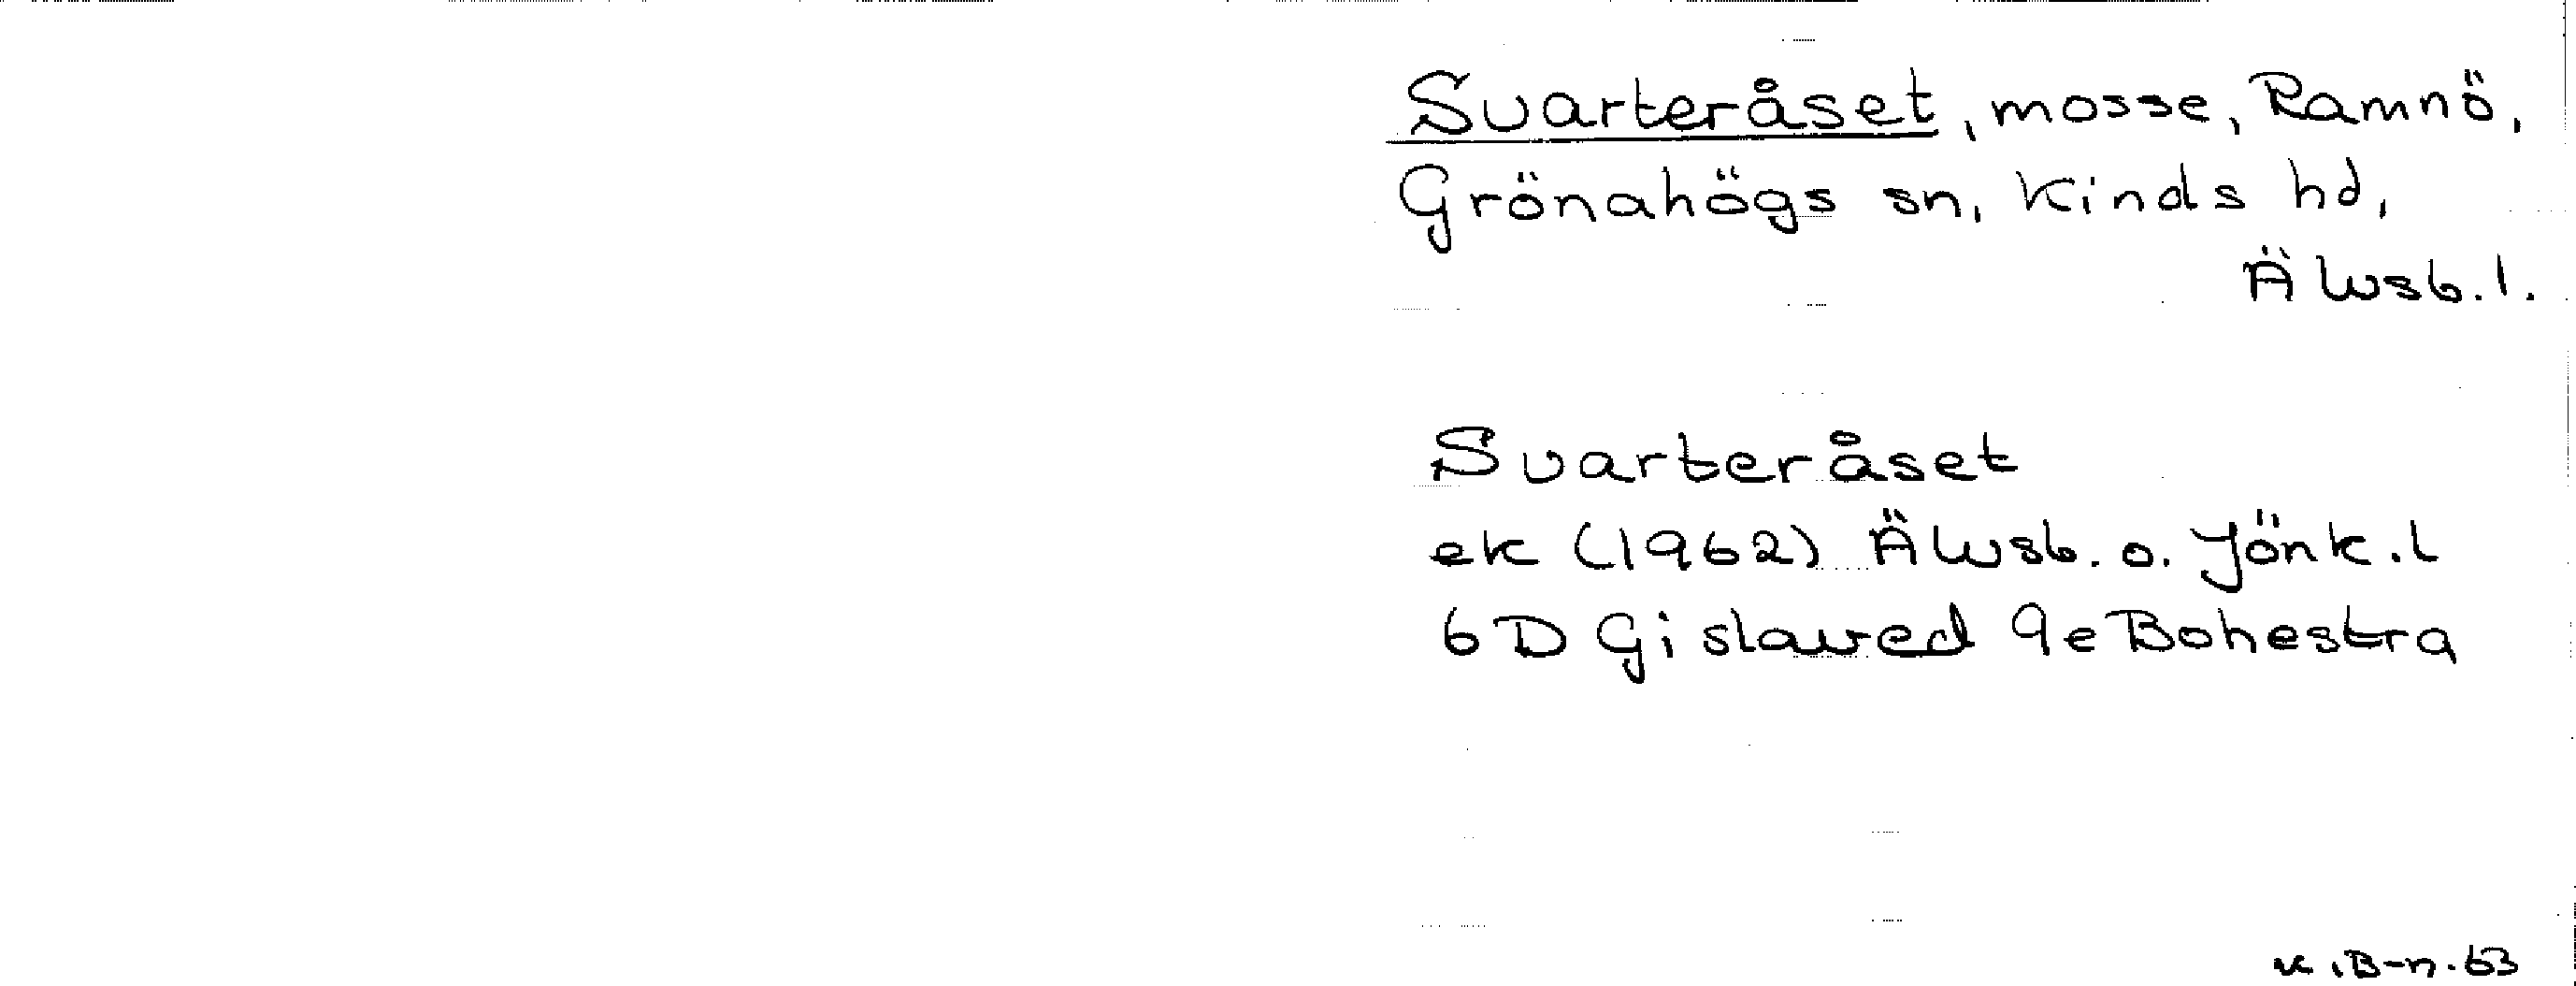 Svarteråset, mosse, Ramnö,
Grönahögs sn, Kinds hd,
Älvsb.l.
Svarteråset
ek (1962) Älvsb. o. Jönk.l
6D Gislaved 9e Bohestra
K.B-n.63